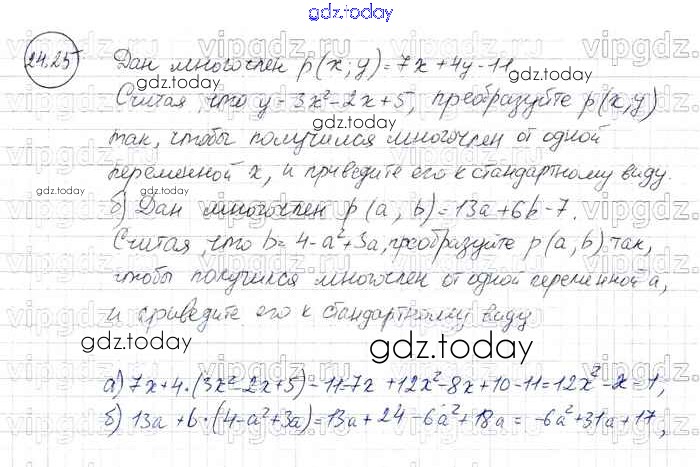 gdz.today
24.25 Дан многочлен p(x;y)=7x+4y-11
Считая, что y=3x²-2x+5, преобразуйте p(x;y)
так, чтобы получился многочлен от одной
переменной x, и приведите его к стандартному виду.
gdz.today
gdz.today
б) Дан многочлен p(a,b)=13a+6b-7.
Считая, что b=4-a²+3a, преобразуйте p(a,b) так,
чтобы получился многочлен от одной переменной a,
и приведите его к стандартному виду
gdz.today
gdz.today
а) 7x+4·(3x²-2x+5)-11=7x+12x²-8x+10-11=12x²-x-1;
б) 13a+6·(4-a²+3a)=13a+24-6a²+18a=-6a²+31a+17;
gdz.today